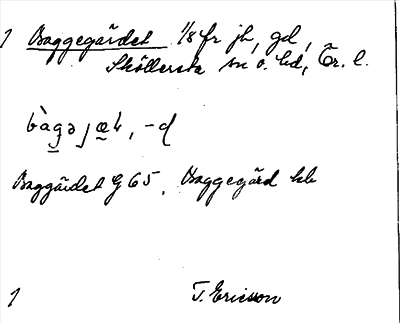 1 Baggegärdet 1/8 fr jh, gd,
Sköllersta sn o. hd, Ör. l.
bàgəjæɖ, -d
Baggärdet G 65, Baggegärd hb
1 T. Ericsson